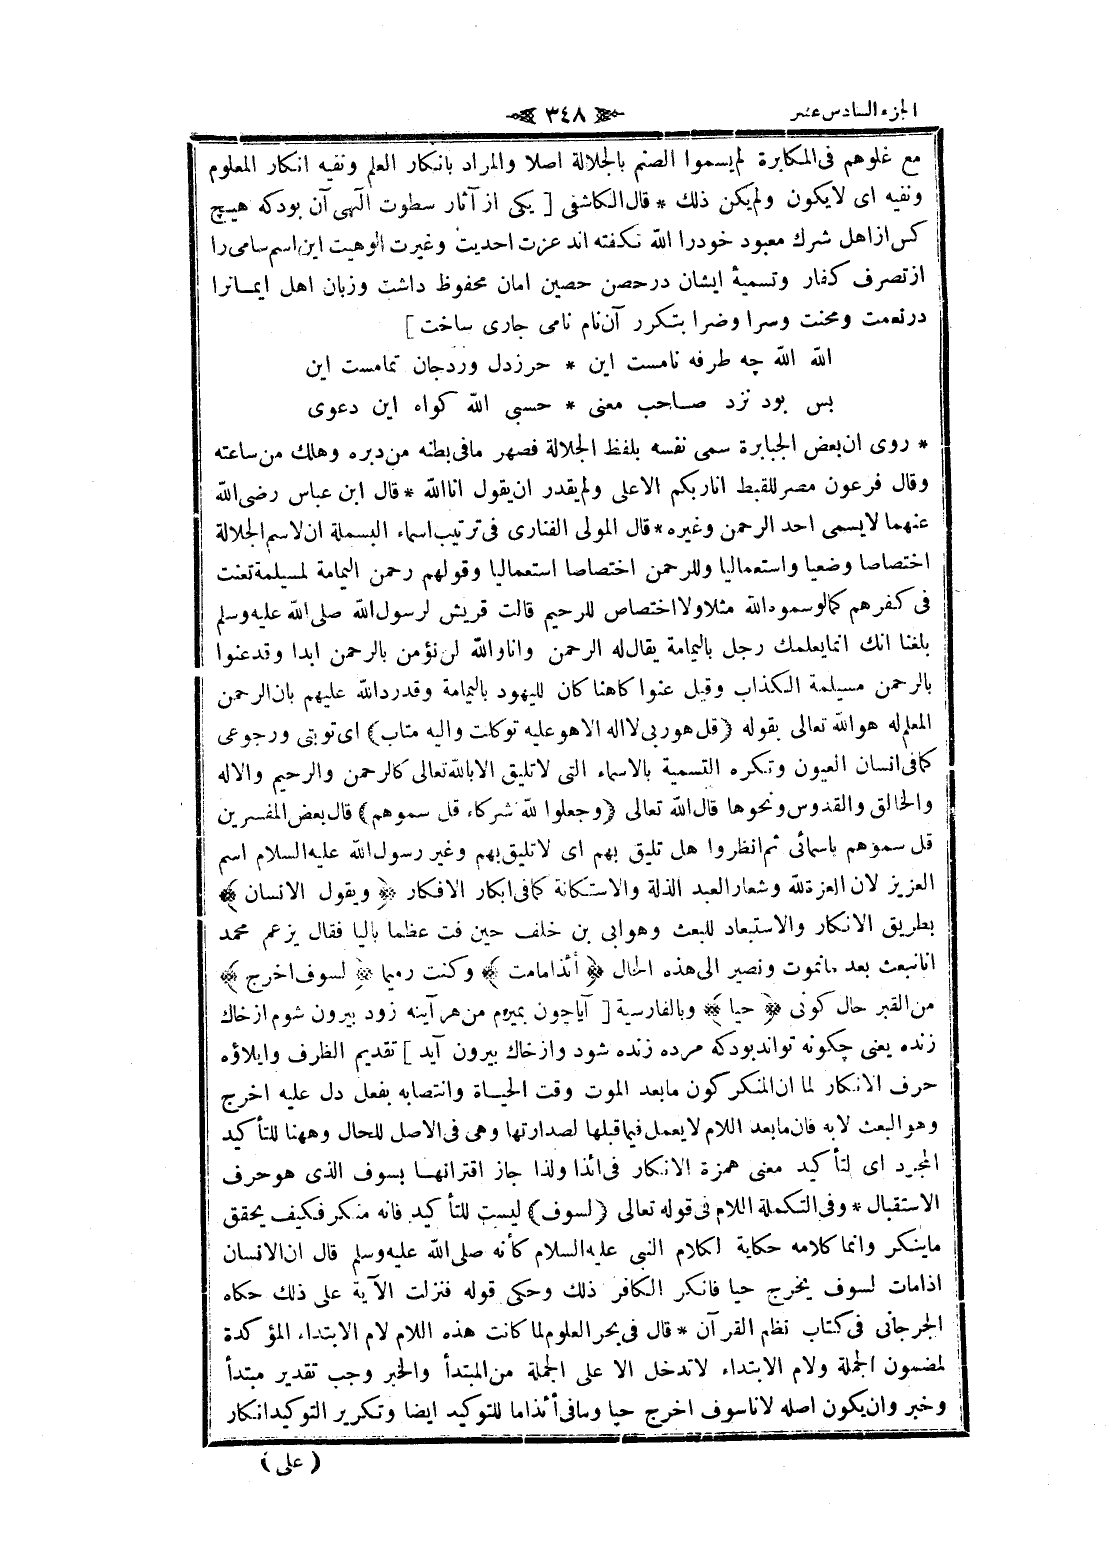 الجزء السادس عشر
٣٤٨
مع غلوهم فى المكابرة لم يسموا الصنم بالجلالة اصلا والمراد بانكار العلم ونفيه انكار المعلوم
ونفيه اى لا يكون ولم يكن ذلك * قال الكاشفى [ يكى از آثار سطوت الٓهى آن بودكه هيچ
كس از اهل شرك معبود خودرا الله نكفته اند عزت احديت وغيرت الوهيت اين اسم سامى را
از تصرف كفار وتسميهٔ ايشان درحصن حصين امان محفوظ داشت وزبان اهل ايمانرا
درنعمت ومحنت وسرا وضرا بتكرر آن نام نامى جارى ساخت ]
الله الله چه طرفه نامست اين * حرزدل وردجان تمامست اين
بس بود نزد صاحب معنى * حسبى الله كواه اين دعوى
* روى ان بعض الجبابرة سمى نفسه بلفظ الجلالة فصهر مافى بطنه من دبره وهلك من ساعته
وقال فرعون مصر للقبط اناربكم الاعلى ولم يقدر ان يقول انا الله * قال ابن عباس رضى الله
عنهما لا يسمى احد الرحمن وغيره * قال المولى الفنارى فى ترتيب اسماء البسملة ان لاسم الجلالة
اختصاصا وضعيا واستعماليا وللرحمن اختصاصا استعماليا وقولهم رحمن اليمامة لمسيلمة تعنت
فى كفرهم كمالوسموه الله مثلا ولا اختصاص للرحيم قالت قريش لرسول الله صلى الله عليه وسلم
بلغنا انك انما يعلمك رجل باليمامة يقال له الرحمن وانا والله لن نؤمن بالرحمن ابدا وقد عنوا
بالرحمن مسيلمة الكذاب وقيل عنوا كاهنا كان لليهود باليمامة وقد رد الله عليهم بان الرحمن
المعلم له هو الله تعالى بقوله ( قل هو ربى لا اله الا هو عليه توكلت واليه متاب ) اى توبتى ورجوعى
كما فى انسان العيون وتكره التسمية بالاسماء التى لا تليق الا بالله تعالى كالرحمن والرحيم والاله
والخالق والقدوس ونحوها قال الله تعالى ( وجعلوا لله شركاء قل سموهم ) قال بعض المفسرين
قل سموهم باسمائى ثم انظروا هل تليق بهم اى لا تليق بهم وغير رسول الله عليه السلام اسم
العزيز لان العزة لله وشعار العبد الذلة والاستكانة كما فى ابكار الافكار ﴿ ويقول الانسان ﴾
بطريق الانكار والاستبعاد للبعث وهو ابى بن خلف حين فت عظما باليا فقال يزعم محمد
انا نبعث بعد ما نموت ونصير الى هذه الحال ﴿ أئذا ما مت ﴾ وكنت رميما ﴿ لسوف اخرج ﴾
من القبر حال كونى ﴿ حيا ﴾ وبالفارسية [ آياچون بميرم من هر آينه زود بيرون شوم ازخاك
زنده يعنى چكونه تواند بودكه مرده زنده شود وازخاك بيرون آيد ] تقديم الظرف وايلاؤه
حرف الانكار لما ان المنكر كون مابعد الموت وقت الحياة وانتصابه بفعل دل عليه اخرج
وهو البعث لا به فان مابعد اللام لا يعمل فيما قبلها لصدارتها وهى فى الاصل للحال وههنا للتأكيد
المجرد اى لتأكيد معنى همزة الانكار فى ائذا ولذا جاز اقترانها بسوف الذى هو حرف
الاستقبال * وفى التكملة اللام فى قوله تعالى ( لسوف ) ليست للتأكيد فانه منكر فكيف يحقق
ما ينكر وانما كلامه حكاية لكلام النبى عليه السلام كأنه صلى الله عليه وسلم قال ان الانسان
اذامات لسوف يخرج حيا فانكر الكافر ذلك وحكى قوله فنزلت الآية على ذلك حكاه
الجرجانى فى كتاب نظم القرآن * قال فى بحر العلوم لما كانت هذه اللام لام الابتداء المؤكدة
لمضمون الجملة ولام الابتداء لا تدخل الا على الجملة من المبتدأ والخبر وجب تقدير مبتدأ
وخبر وان يكون اصله لانا سوف اخرج حيا وما فى أئذاما للتوكيد ايضا وتكرير التوكيد انكار
( على )